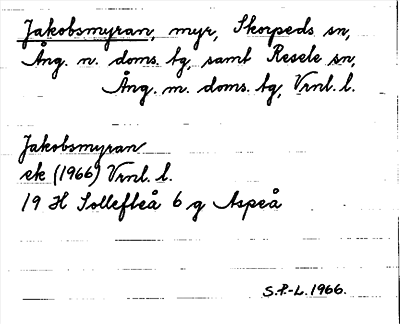 Jakobsmyran, myr, Skorpeds sn,
Ång. n. doms. tg, samt Resele sn,
Ång. m. doms. tg, Vrnl. l.
Jakobsmyran
ek (1966) Vrnl. l.
19 H Sollefteå 6 g Aspeå
S.P-L. 1966.